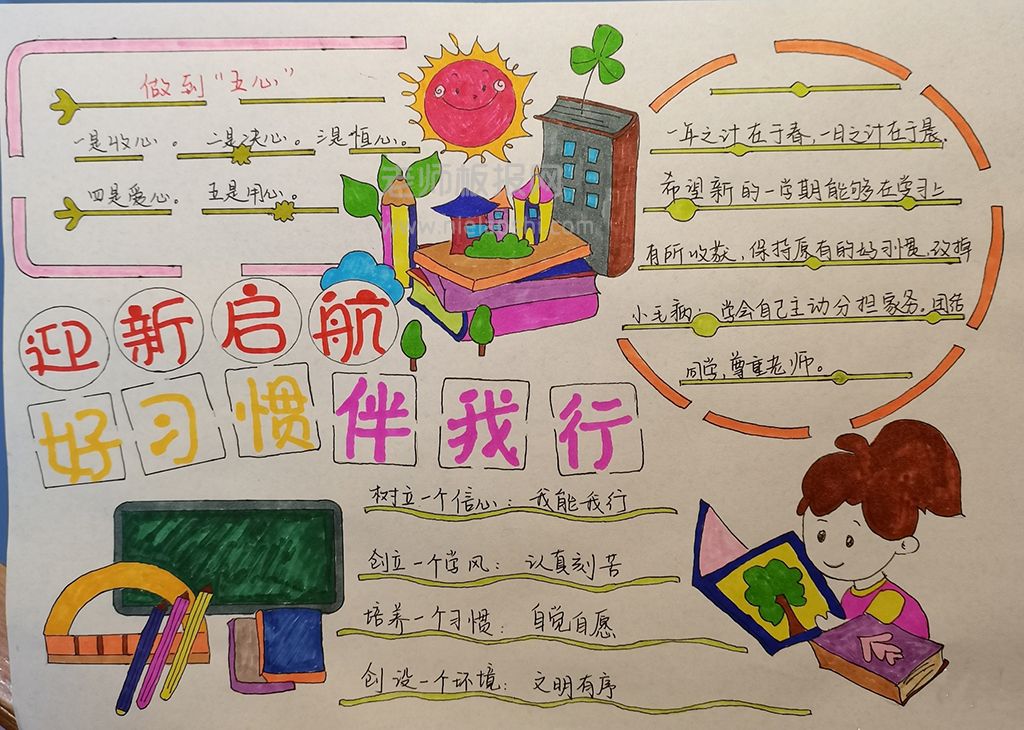 做到“五心”
一是收心。二是决心。三是恒心。
四是爱心。五是用心。
老师板报网
迎新启航
好习惯伴我行
一年之计在于春,一日之计在于晨,
希望新的一学期能够在学习上
有所收获,保持原有的好习惯,改掉
小毛病;学会自己主动分担家务,团结
同学,尊重老师。
树立一个信心:我能我行
创立一个学风:认真刻苦
培养一个习惯:自觉自愿
创设一个环境:文明有序